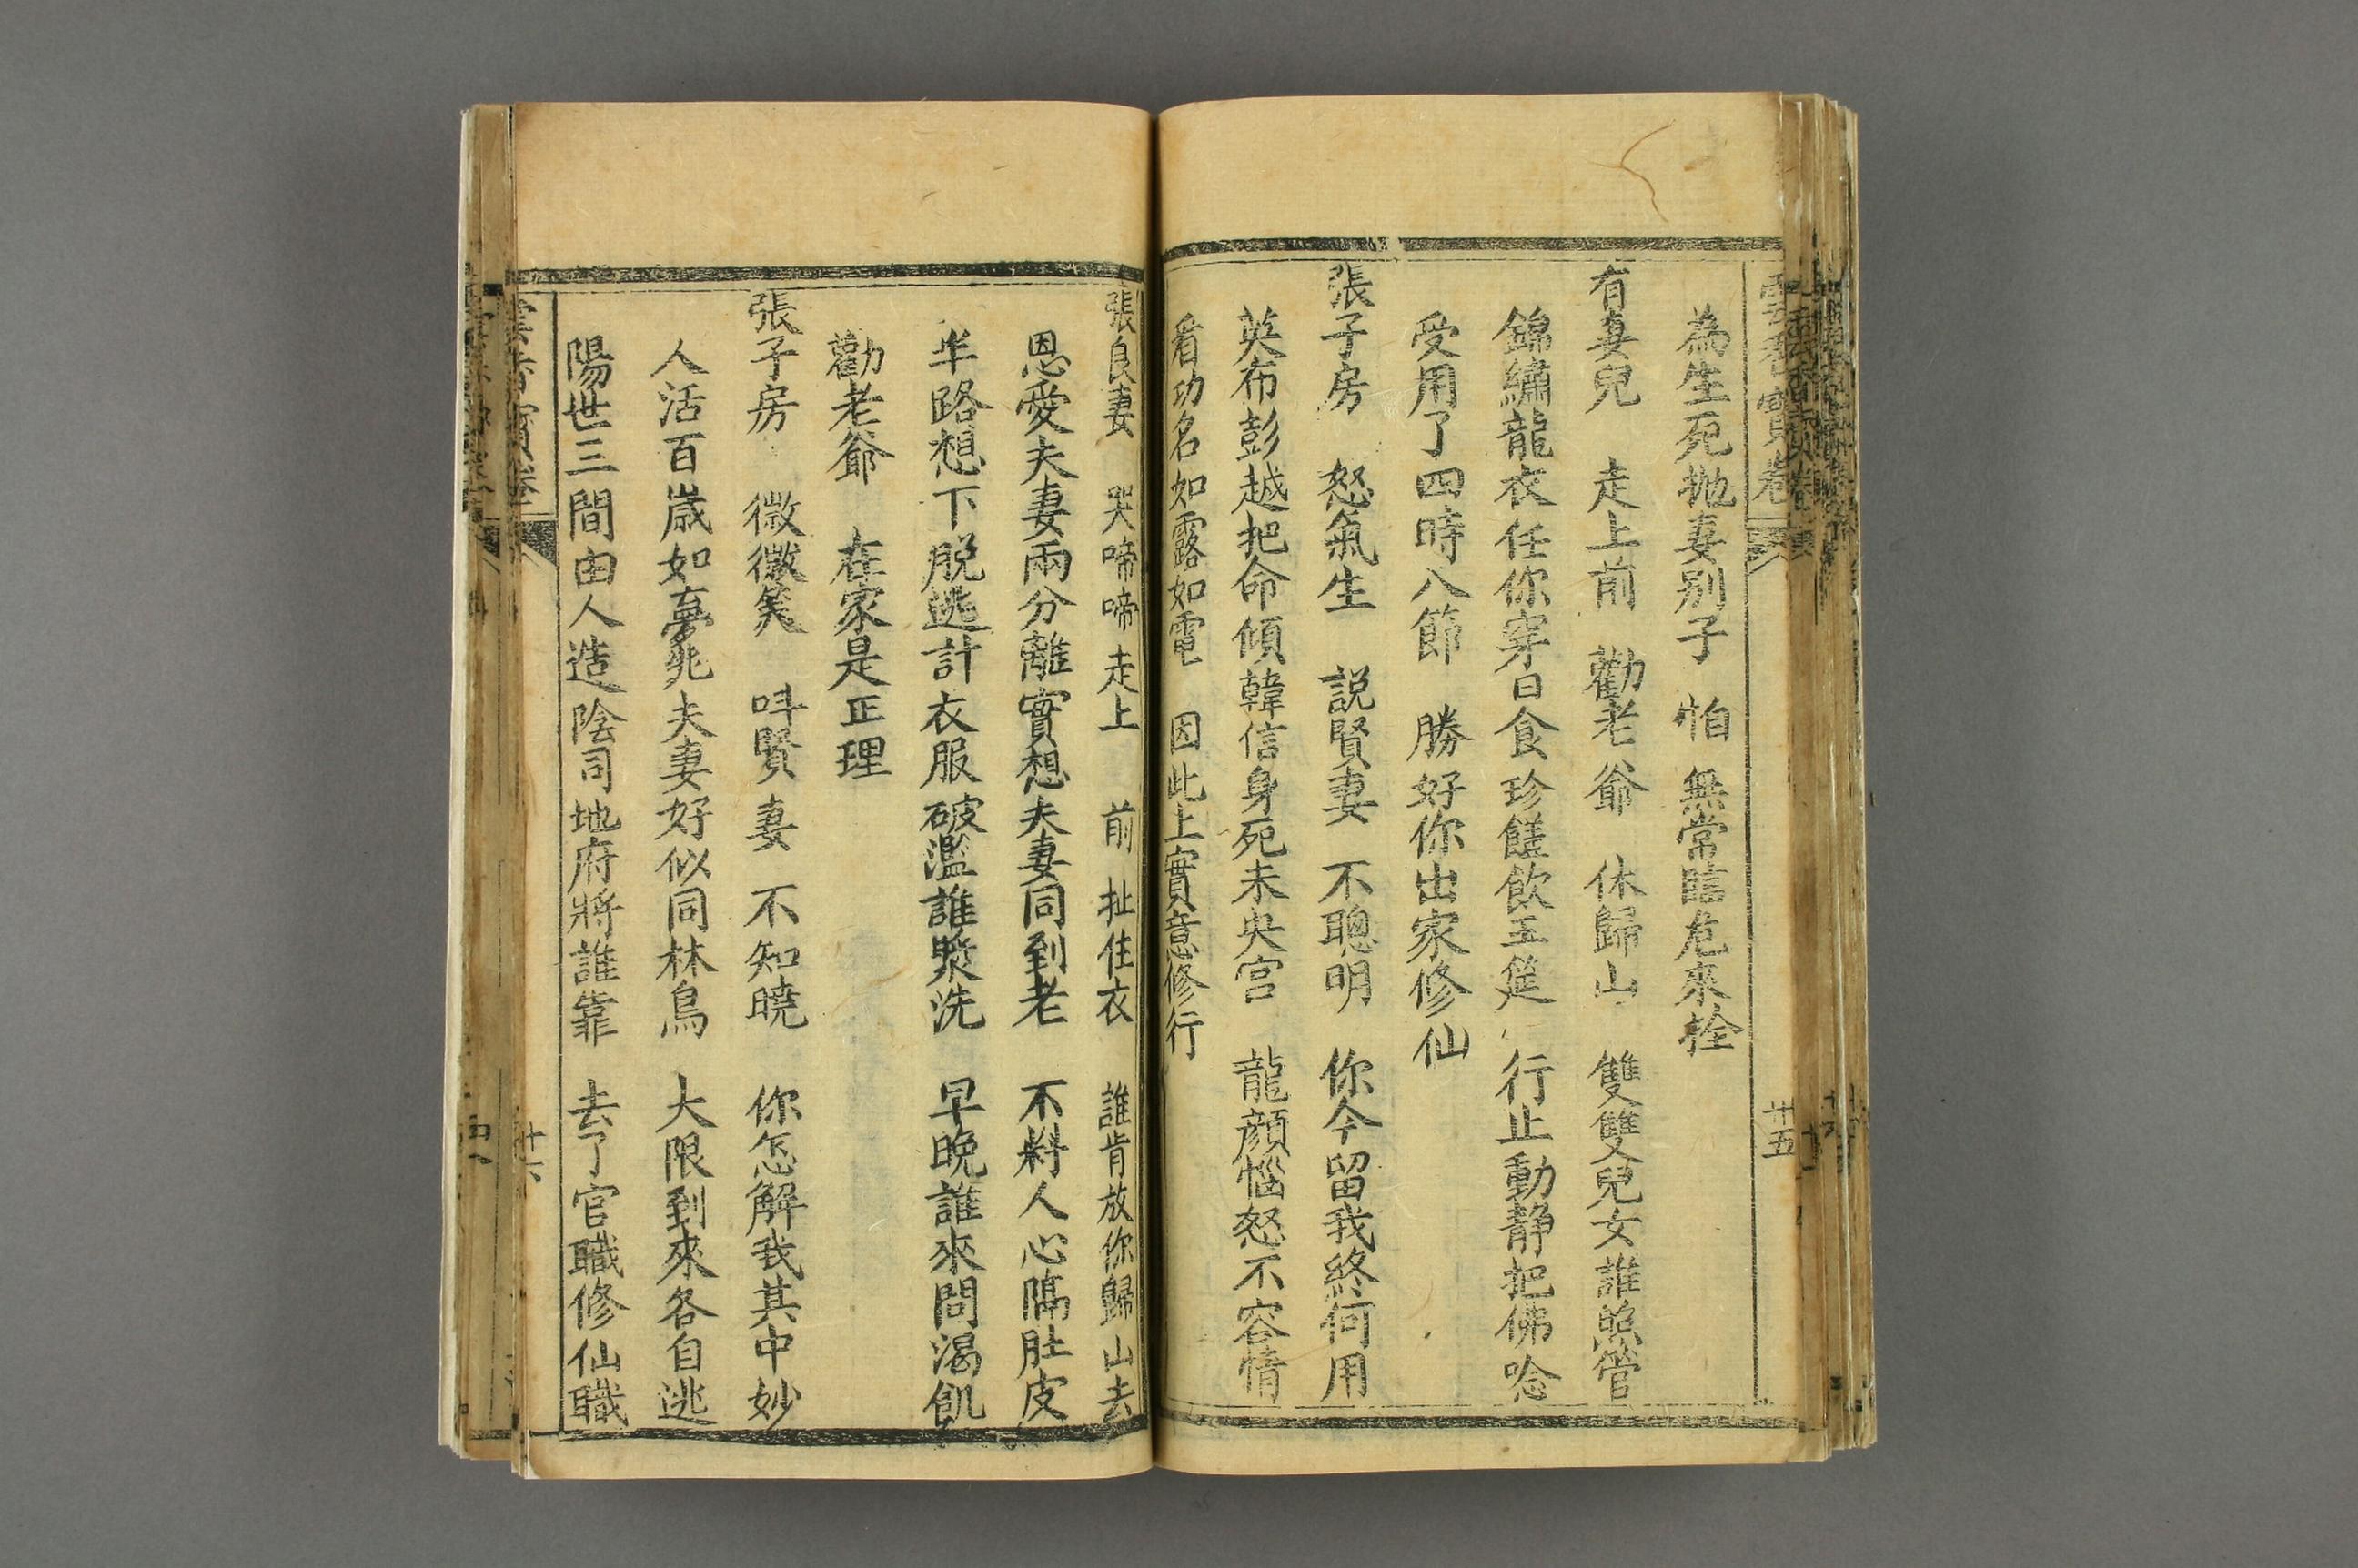 為生死拋妻別子 怕無常臨危來拴
有妻兒 走上前 勸老爺 休歸山 雙雙兒女誰照管
錦繡龍衣任你穿日食珍饈飲玉筵 行止動静把佛唸
受用了四時八節 勝好你出家修仙
張子房 怒氣生 説賢妻 不聰明 你今留我終何用
英布彭越把命傾韓信身死未央宮 龍顔惱怒不容情
看功名如露如電 因此上實意修行
張良妻 哭啼啼 走上前 扯住衣 誰肯放你歸山去
恩愛夫妻兩分離實想夫妻同到老 不料人心隔肚皮
半路想下脱逃計衣服破濫誰漿洗 早晚誰來問渴飢
勸老爺 在家是正理
張子房 微微笑 呌賢妻 不知曉 你怎解我其中妙
人活百歲如夢兆夫妻好似同林鳥 大限到來各自逃
陽世三間由人造陰司地府將誰靠 去了官職修仙職